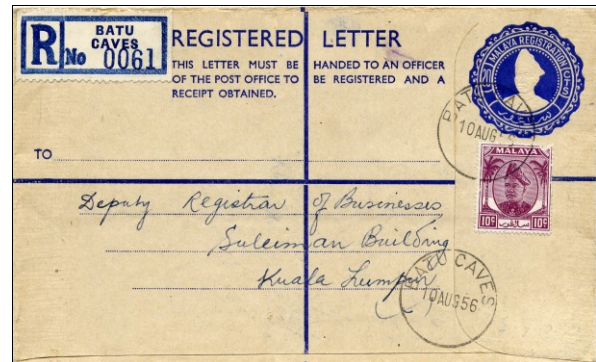 R No BATU CAVES 0061
REGISTERED LETTER
THIS LETTER MUST BE HANDED TO AN OFFICER
OF THE POST OFFICE TO BE REGISTERED AND A
RECEIPT OBTAINED.
MALAYA REGISTRATION
BATU CAVES
10 AUG
TO
MALAYA
10c 10c
Deputy Registrar of Businesses
Suleiman Building
Kuala Lumpur
BATU CAVES
10 AUG 56